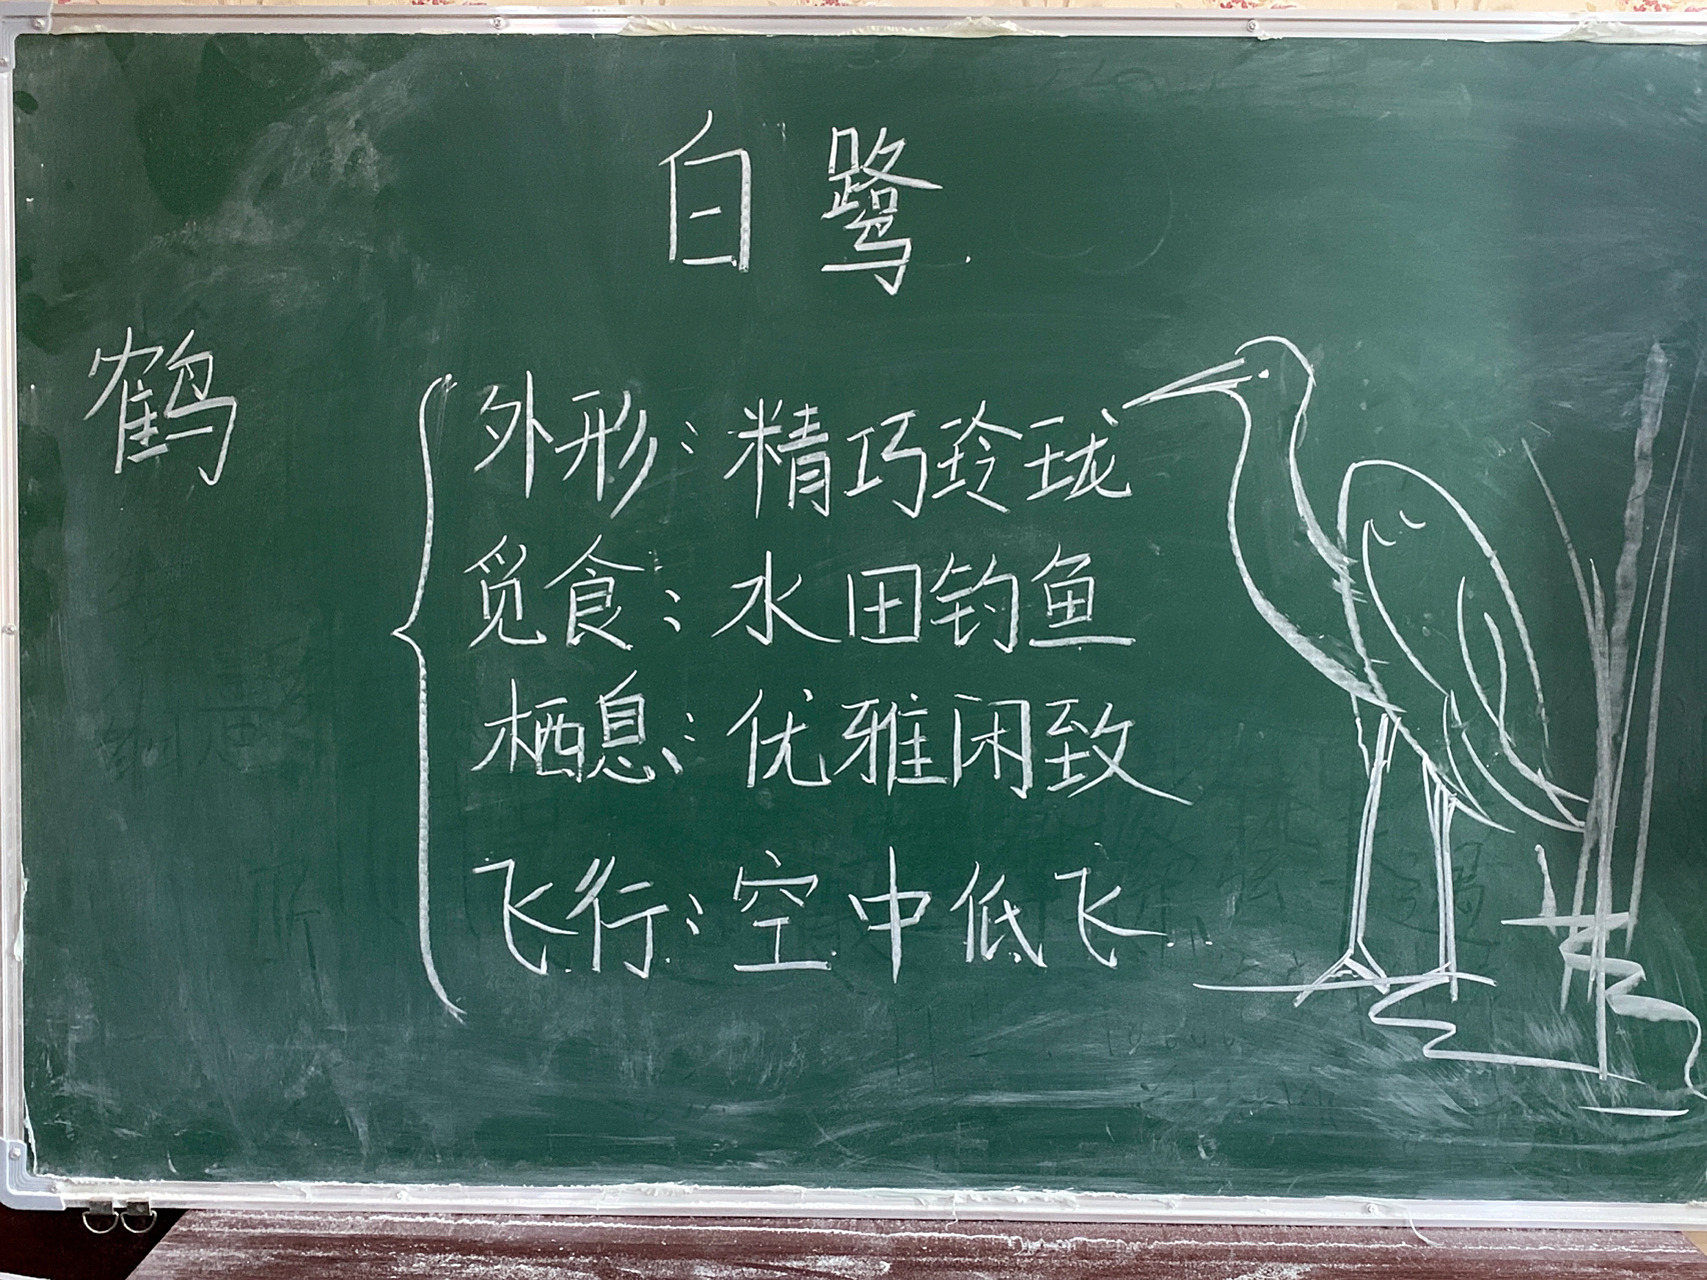 白鹭
鹤
外形：精巧玲珑
觅食：水田钓鱼
栖息：优雅闲致
飞行：空中低飞